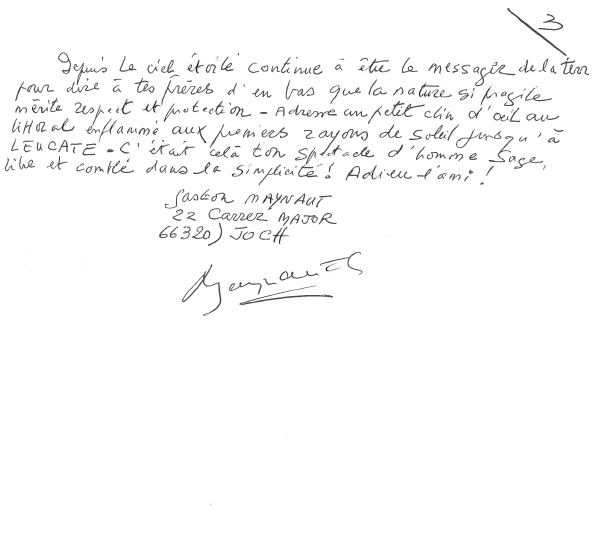 3
Depuis le ciel étoilé continue à être le messager de la terre
pour dire à tes frères d'en bas que la nature si fragile
mérite respect et protection - Adresse un petit clin d'œil au
littoral enflammé aux premiers rayons de soleil jusqu'à
LEUCATE. C'était celà ton spectacle d'homme sage,
libre et comblé dans la simplicité ! Adieu l'ami !
Gaston MAYNAUT
22 Carrer MAJOR
66320) JOCH